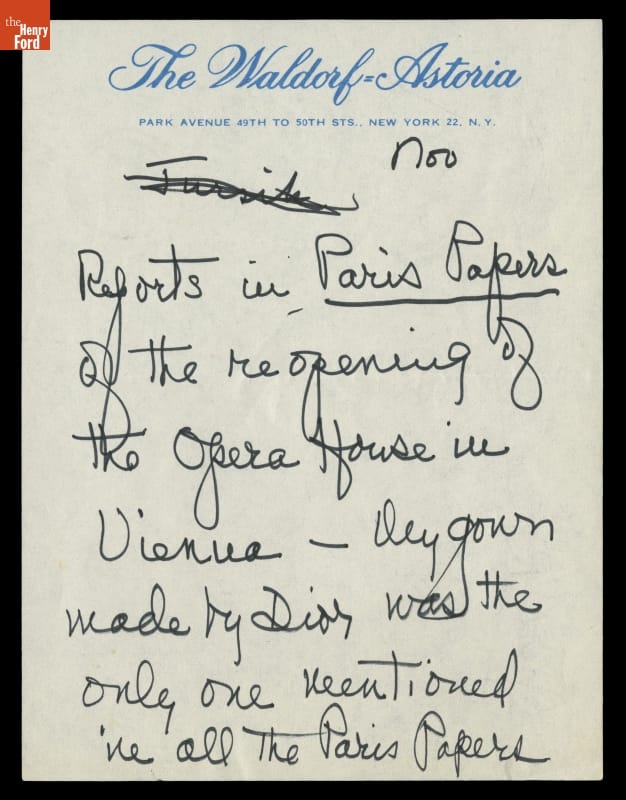 the
Henry
Ford
The Waldorf=Astoria
PARK AVENUE 49TH TO 50TH STS., NEW YORK 22, N.Y.
Nov
Reports in Paris Papers
of the reopening of
the Opera House in
Vienna — My gown
made by Dior was the
only one mentioned
in all the Paris Papers